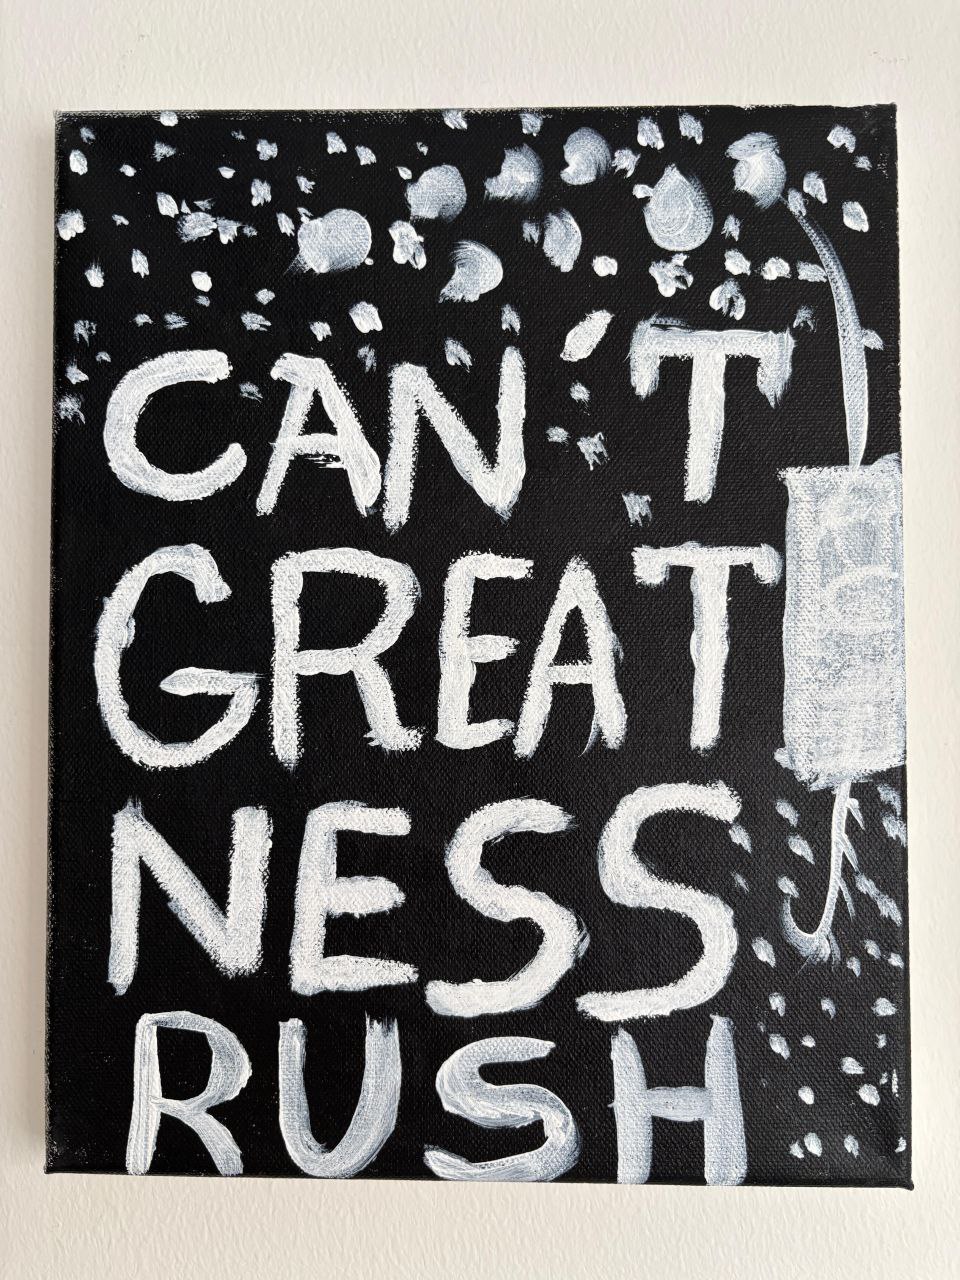 CAN´T
GREAT
NESS
RUSH